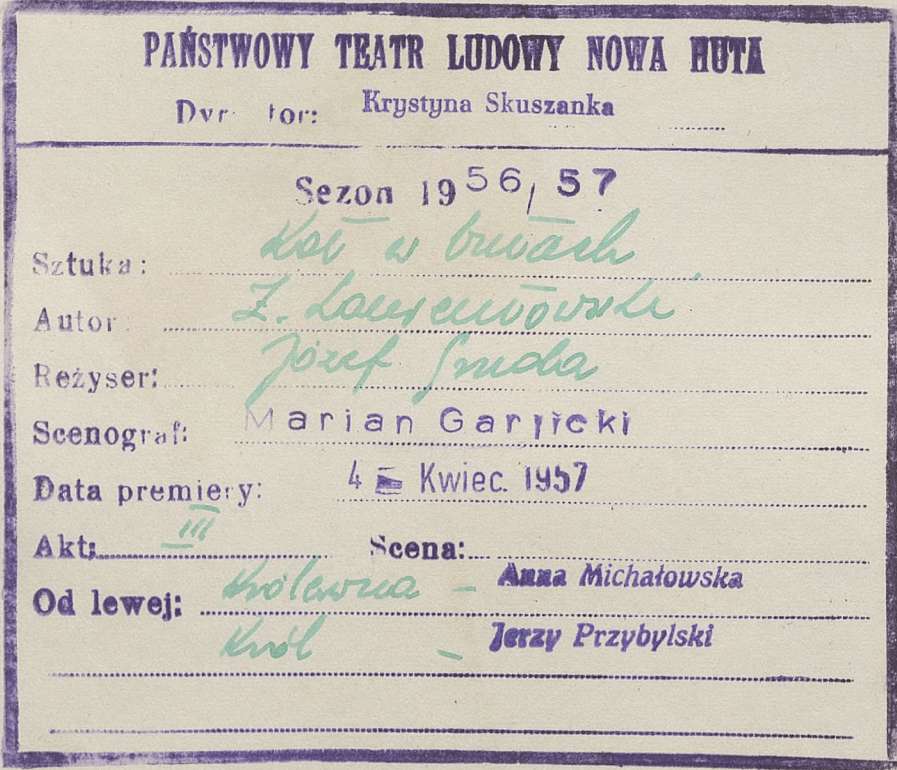 PAŃSTWOWY TEATR LUDOWY NOWA HUTA
Krystyna Skuszanka
Sezon 1956/57
Sztuka: Kot w butach
Autor: Z.
Reżyser: Józef Gruda
Scenograf: Marian Garlicki
Data premiery: 4 Kwiec. 1957
Akt: III Scena:
Od lewej: Królewna – Anna Michałowska
Król – Jerzy Przybylski